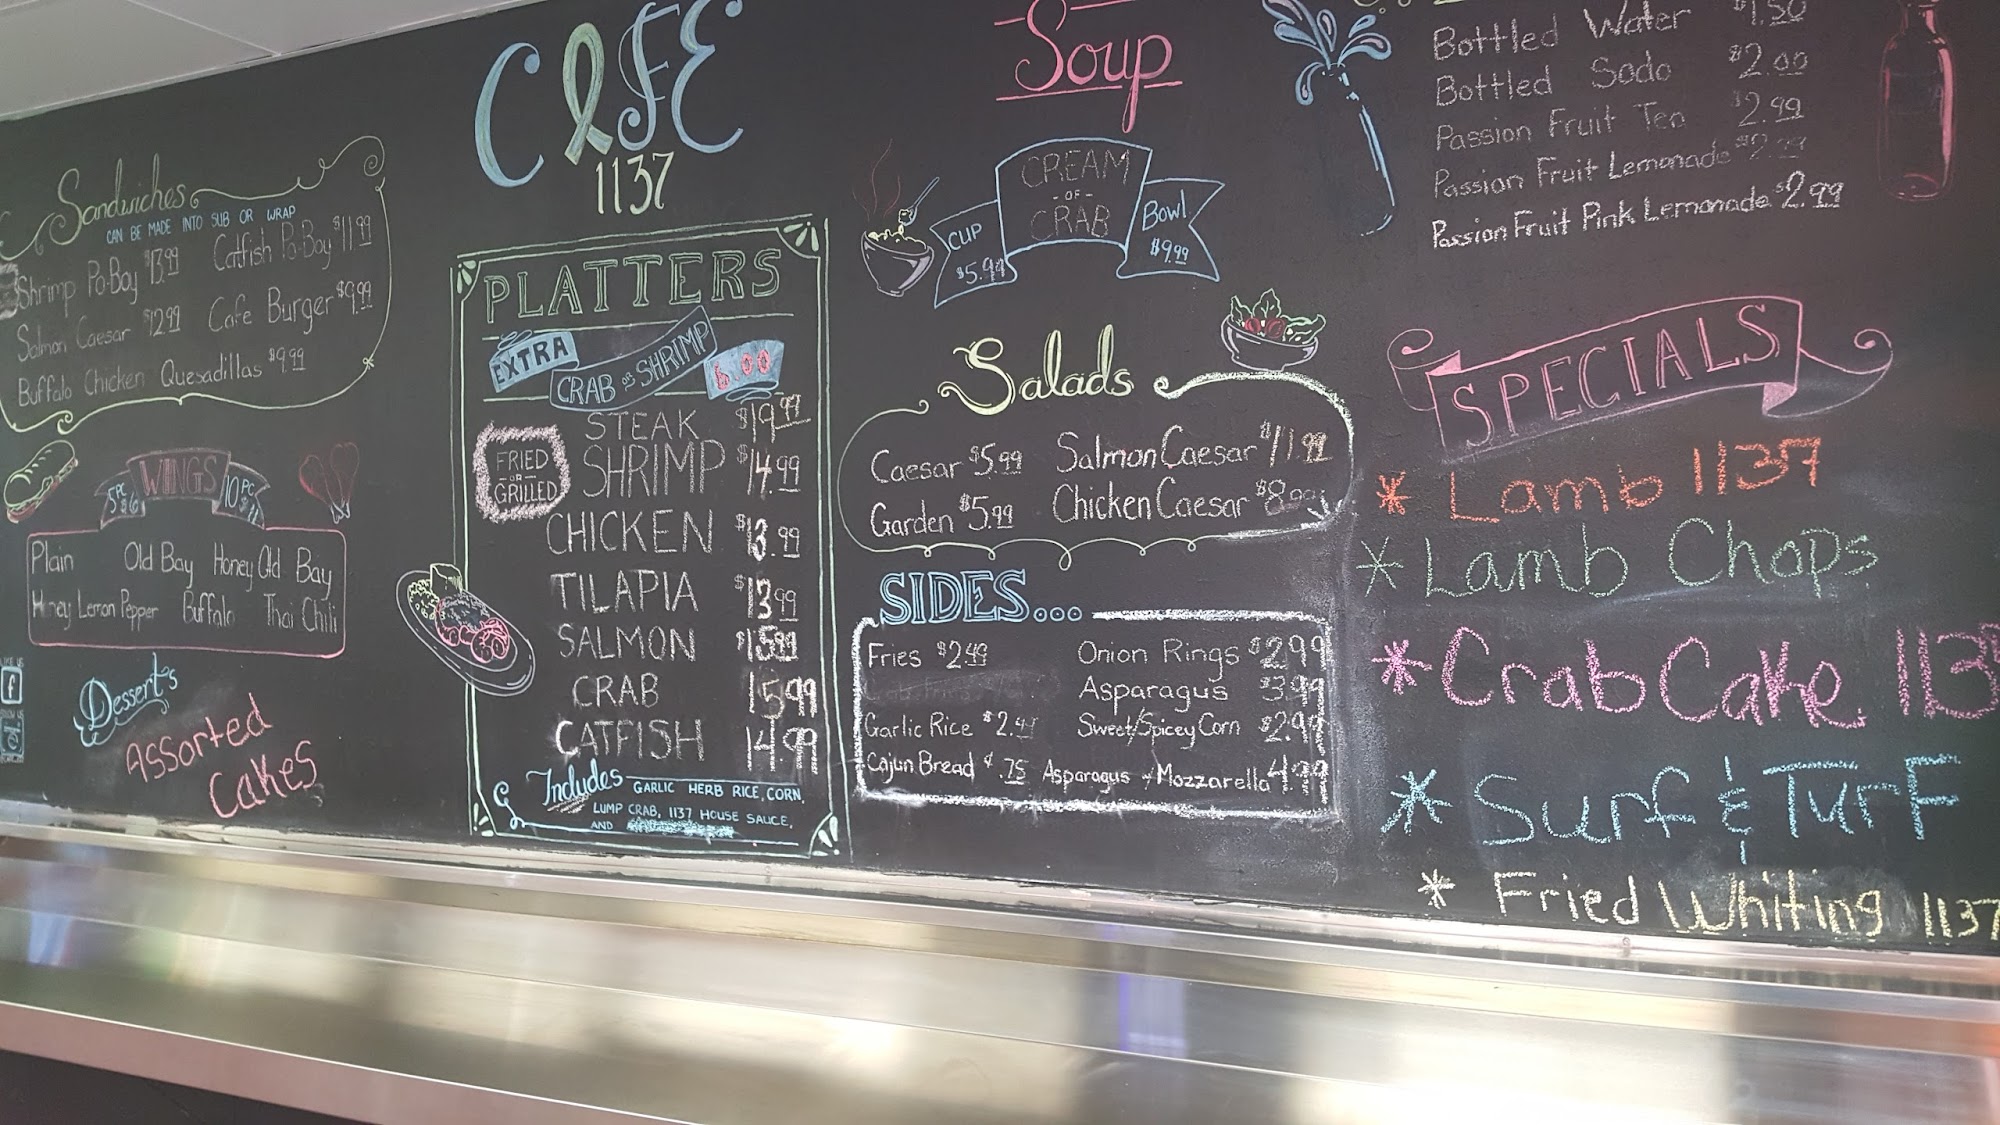 CAFE
1137
Sandwiches
CAN BE MADE INTO SUB OR WRAP
Shrimp Po-Boy $13.99
Catfish Po-Boy $11.99
Salmon Caesar $12.99
Cafe Burger $9.99
Buffalo Chicken Quesadillas $9.99
WINGS
5pc $6
10pc $11
Plain Old Bay Honey Old Bay
Honey Lemon Pepper Buffalo Thai Chili
LIKE US
f
Dessert's
Assorted
Cakes
PLATTERS
EXTRA CRAB or SHRIMP 6.00
FRIED
OR
GRILLED
STEAK $19.99
SHRIMP $14.99
CHICKEN $13.99
TILAPIA $13.99
SALMON $15.99
CRAB 15.99
CATFISH 14.99
Includes GARLIC HERB RICE, CORN,
LUMP CRAB, 1137 HOUSE SAUCE,
AND
Soup
CREAM
-OF-
CRAB
CUP
$5.99
Bowl
$9.99
Salads
Caesar $5.99 Salmon Caesar $11.99
Garden $5.99 Chicken Caesar $8.99
SIDES...
Fries $2.49 Onion Rings $2.99
Asparagus $3.99
Garlic Rice $2.49 Sweet/Spicey Corn $2.99
Cajun Bread $.75 Asparagus w/Mozzarella 4.99
Bottled Water $1.50
Bottled Soda $2.00
Passion Fruit Tea $2.99
Passion Fruit Lemonade $2.99
Passion Fruit Pink Lemonade $2.99
SPECIALS
* Lamb 1137
* Lamb Chops
* Crab Cake 1137
* Surf & Turf
* Fried Whiting 1137